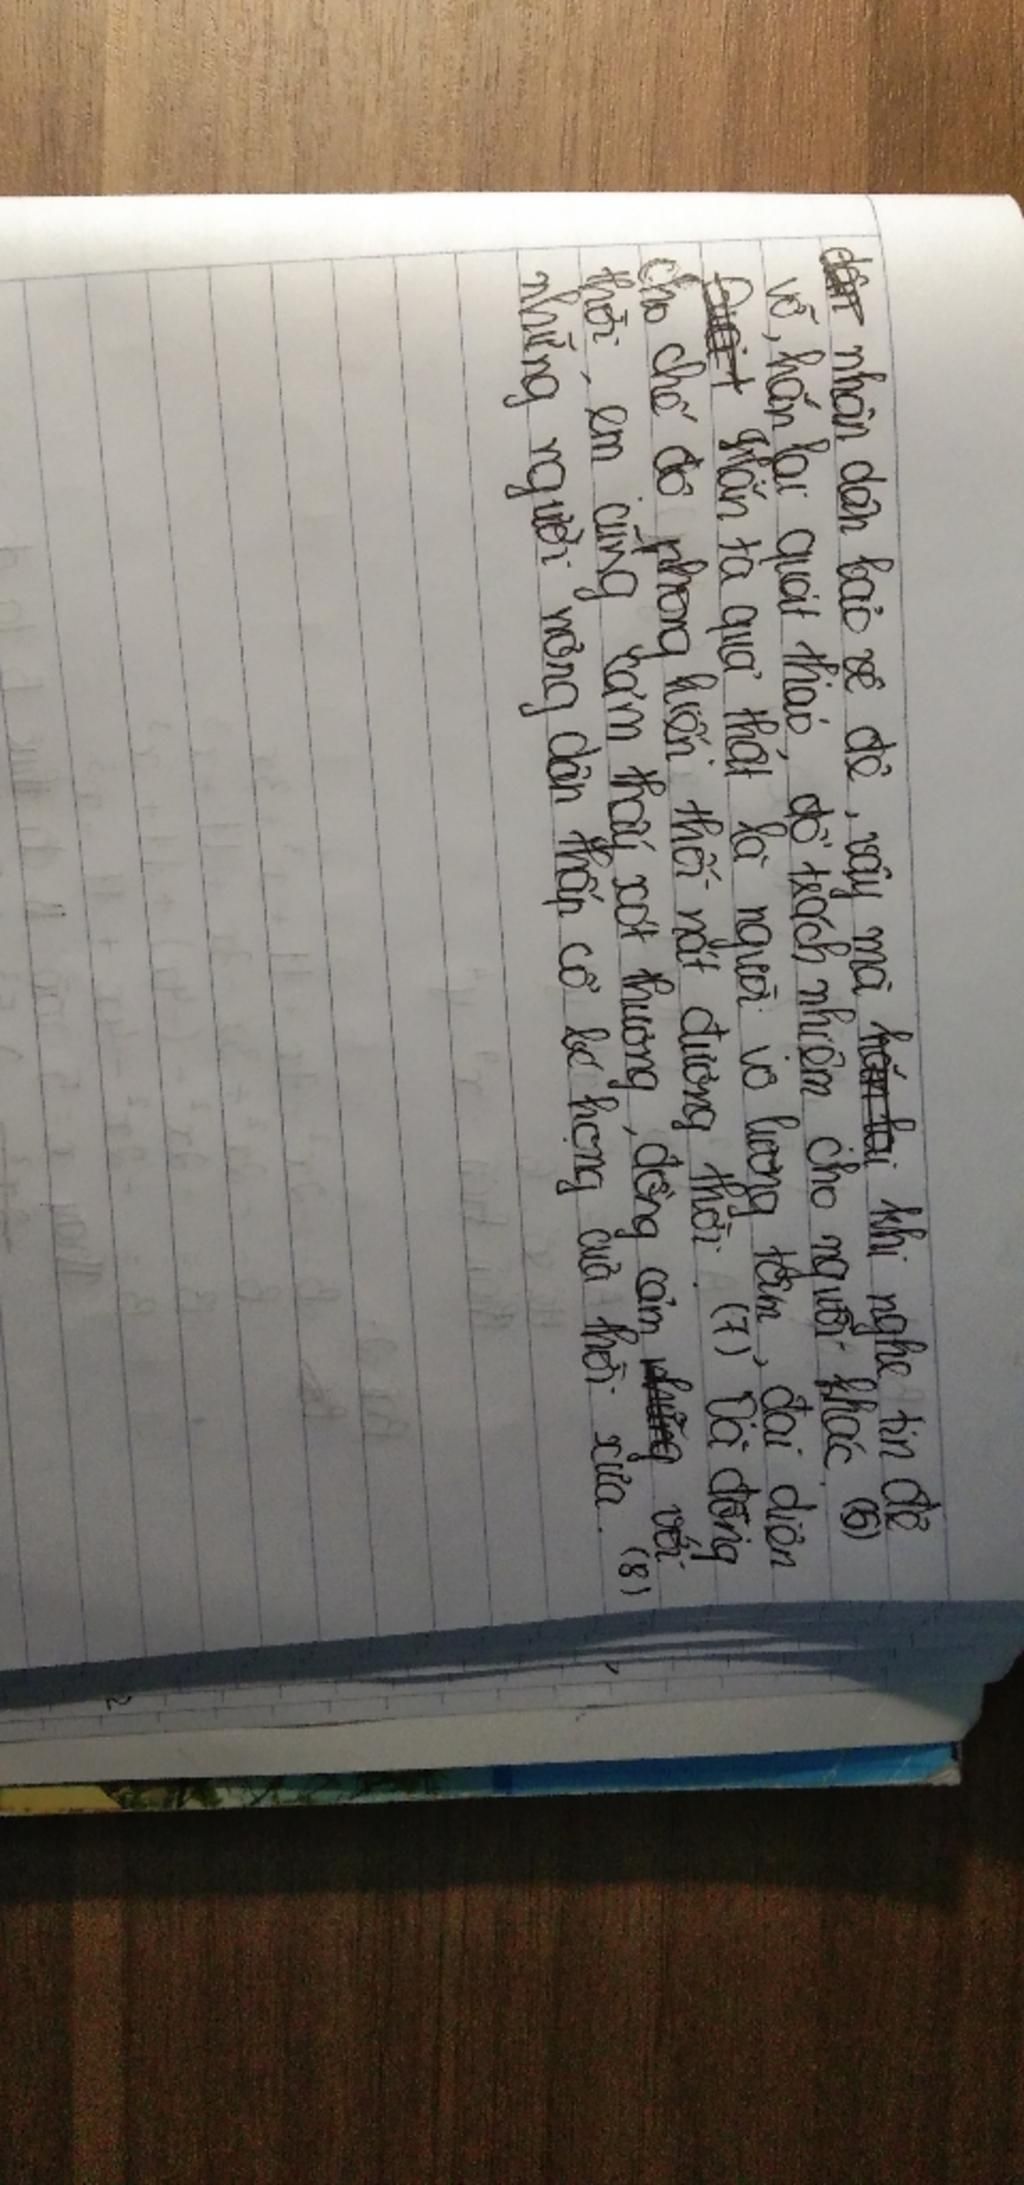 nhân dân bảo vệ đê, vậy mà khi nghe tin đê
vỡ, hắn lại quát tháo, đổ trách nhiệm cho người khác. (6)
hắn ta quả thật là người vô lương tâm, đại diện
cho chế độ phong kiến thối nát đương thời. (7) Và đồng
thời, em cũng cảm thấy xót thương, đồng cảm với
những người nông dân thấp cổ bé họng của thời xưa. (8)